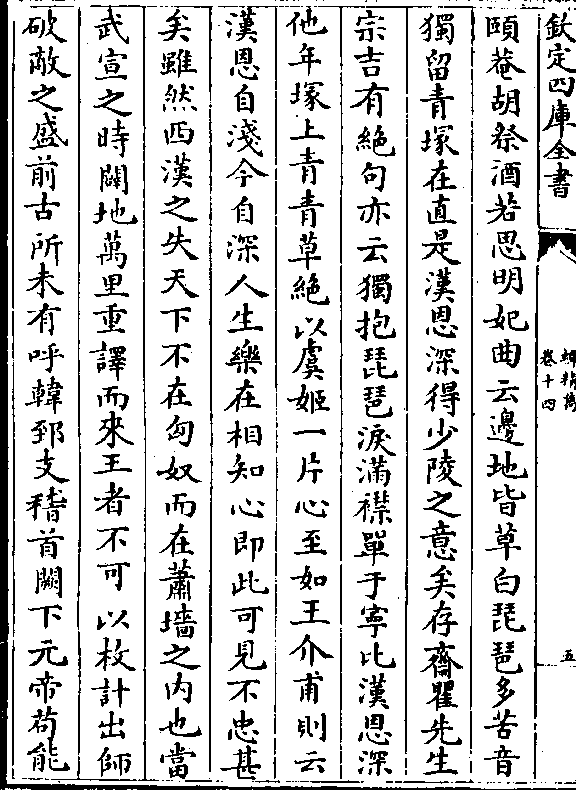 欽定四庫全書
蟫精雋
卷十四
五
頤菴胡祭酒若思明妃曲云邊地皆草白琵琶多苦音
獨留青塚在直是漢恩深得少陵之意矣存齋瞿先生
宗吉有絶句亦云獨抱琵琶淚滿襟單于寧比漢恩深
他年塚上青青草絶以虞姬一片心至如王介甫則云
漢恩自淺今自深人生樂在相知心即此可見不忠甚
矣雖然西漢之失天下不在匈奴而在蕭墻之内也當
武宣之時闢地萬里重譯而來王者不可以枚計出師
破敵之盛前古所未有呼韓郅支稽首闕下元帝苟能